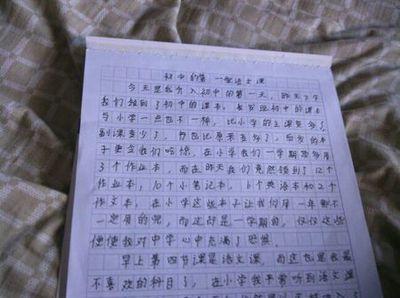 初中的第一堂语文课
今天是我步入初中的第一天,昨天下午
我们领到了初中的课本,我发现初中的课本
与小学一点也不一样,比小学的主课变多了
副课变少了,书包比原来重多了,后发的本
子更令我们吃惊,在小学我们一学期顶多用
3个作业本,而在昨天我们竟然领到了12个
作业本,10个小笔记本,6个英语本和2个
作文本,在小学这些本子让我们用一年都不
一定用的完,而这却是一学期的,仅仅这些
便使我对中学心中充满了恐惧
早上第四节课是语文课,而这也是我最
不喜欢的科目了,在小学我平常听到语文课